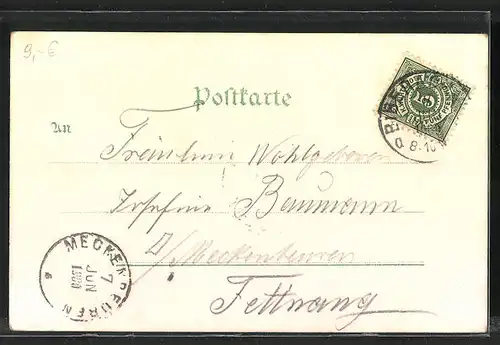 9,-€
Postkarte
An
Fräulein Wohlgeboren
Josefine Baumann
Meckenbeuren
Tettnang
8-10
MECKENBEUREN
7
JUN